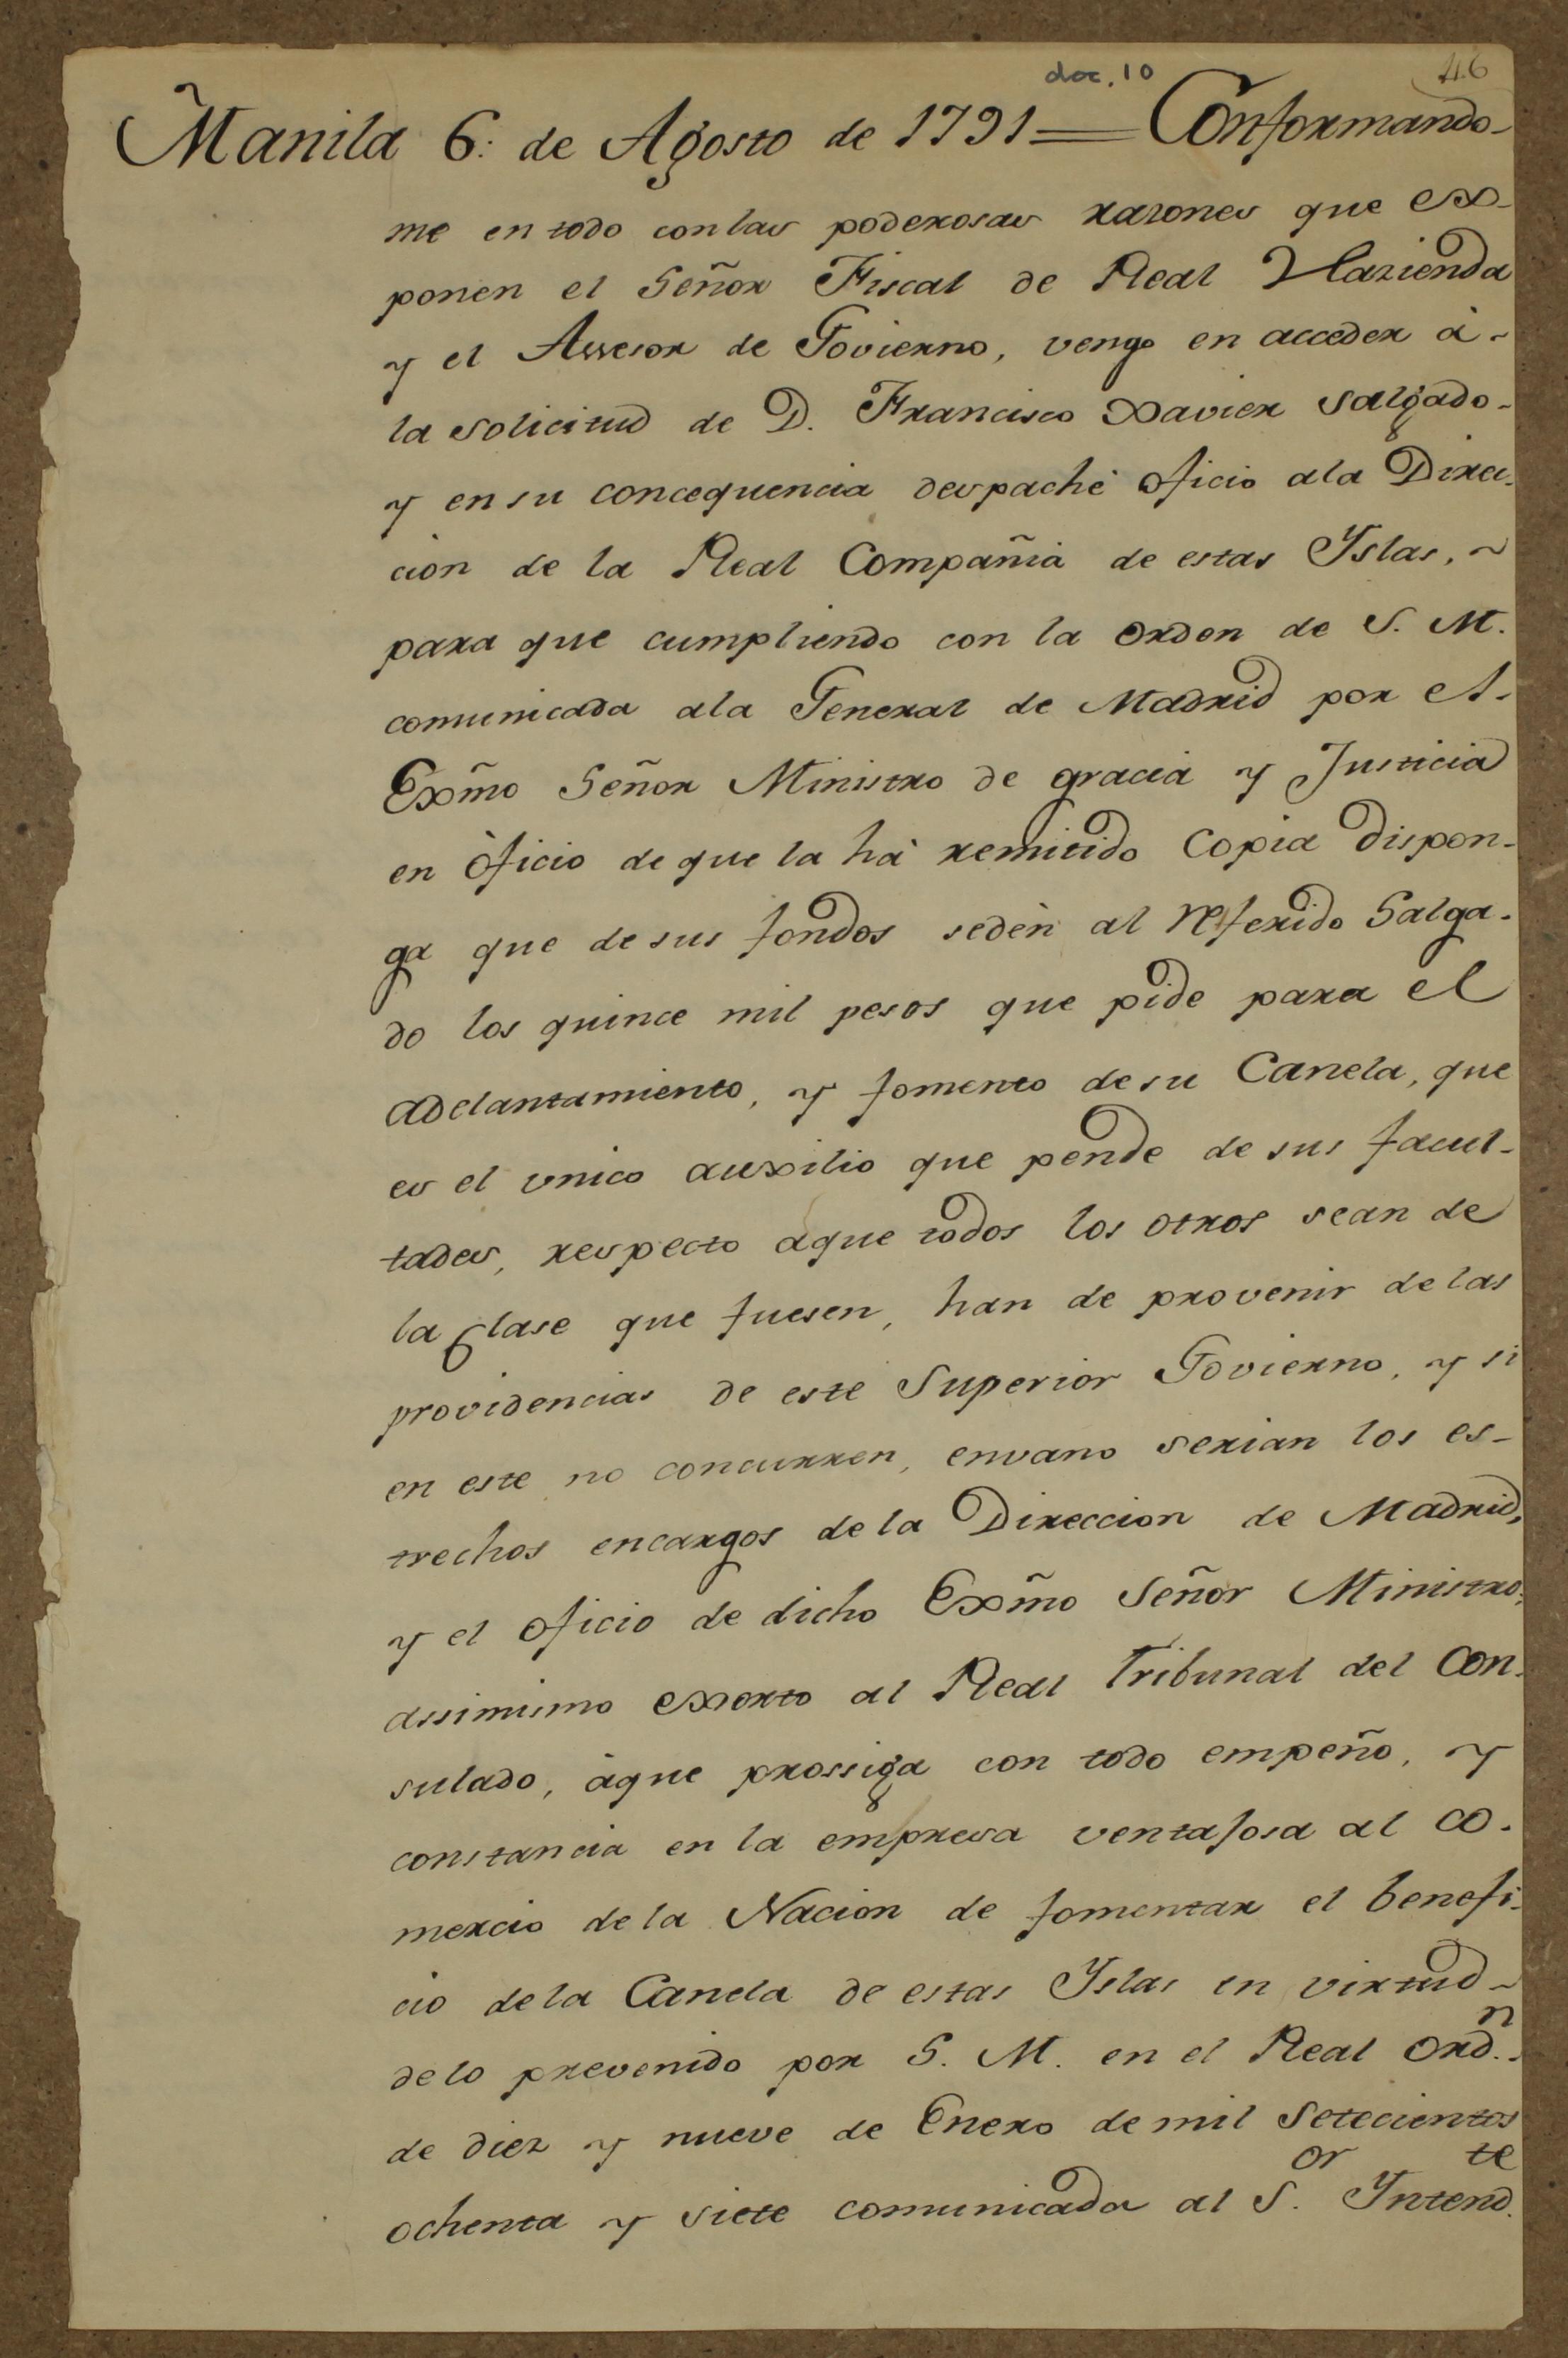 doc. 10
46
Manila 6: de Agosto de 1791 = Conformando-
me en todo con las poderosas razones que ex-
ponen el Señor Fiscal de Real Hazienda
y el Assesor de Govierno, vengo en acceder à-
la solicitud de D. Francisco Xavier Salgado-
y en su concequencia despachè oficio ala Direc-
cion de la Real Compañia de estas Yslas, ~
para que cumpliendo con la orden de S. M.
comunicada ala General de Madrid por el-
Exmõ Señor Ministro de gracia y Justicia
en òficio de que la hà remitido Copia dispon-
ga que de sus fondos sedèn al referido Salga-
do los quince mil pesos que pide para el
adelantamiento, y fomento de su Canela, que
es el vnico auxilio que pende de sus facul-
tades, respecto aque todos los otros sean de
la Clase que fuesen, han de provenir de las
providencias de este Superior Govierno, y si
en este no concurren, envano serian los es-
trechos encargos de la Direccion de Madrid,
y el oficio de dicho Exmõ Señor Ministro:
assimismo exorto al Real Tribunal del Con-
sulado, àque prossiga con todo empeño, y
constancia en la empresa ventajosa al co-
mercio de la Nacion de fomentar el benefi-
cio dela Canela de estas Yslas en virtud ~
delo prevenido por S. M. en el Real Ord.n
de diez y nueve de Enero de mil Setecientos
ochenta y siete comunicada al S.or Intend.te